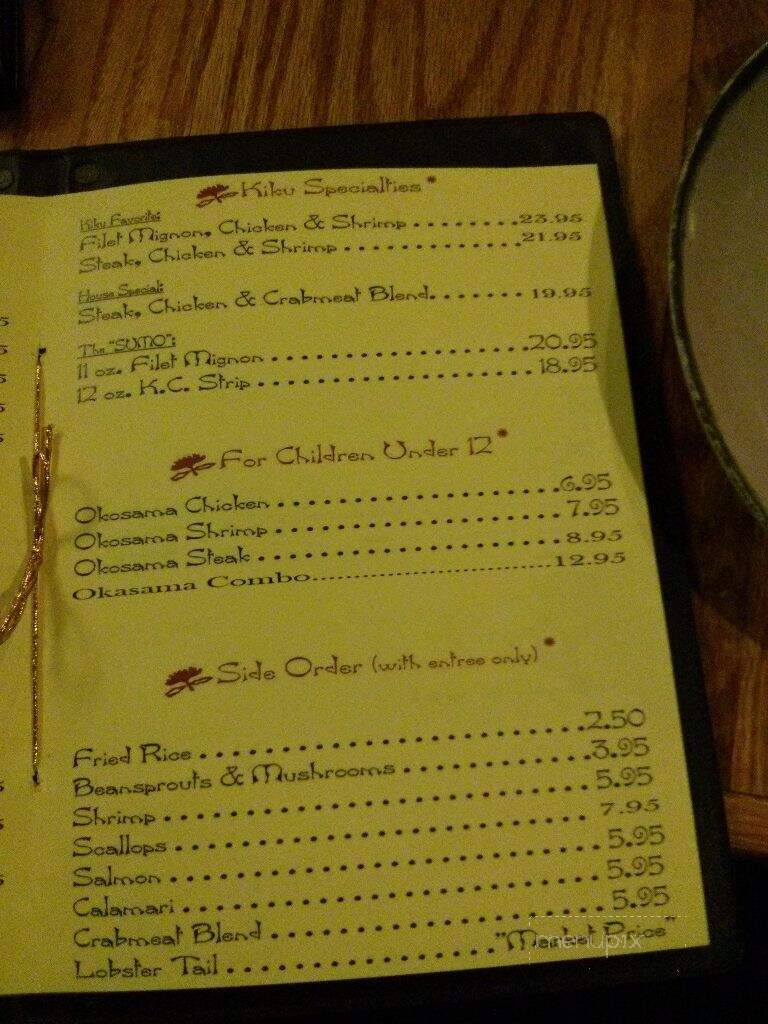 Kiku Specialties
Kiku Favorite:
Filet Mignon, Chicken & Shrimp ........23.95
Steak, Chicken & Shrimp .............21.95
House Special:
Steak, Chicken & Crabmeat Blend....... 19.95
The "SUMO":
11 oz. Filet Mignon ..................20.95
12 oz. K.C. Strip ................... 18.95
For Children Under 12
Okosama Chicken ...................6.95
Okosama Shrimp ................... 7.95
Okosama Steak .................... 8.95
Okasama Combo.............................12.95
Side Order (with entree only)
Fried Rice .........................2.50
Beansprouts & Mushrooms ............3.95
Shrimp ............................5.95
Scallops .......................... 7.95
Salmon ........................... 5.95
Calamari .......................... 5.95
Crabmeat Blend .................... 5.95
Lobster Tail ................."Market Price"
menupix